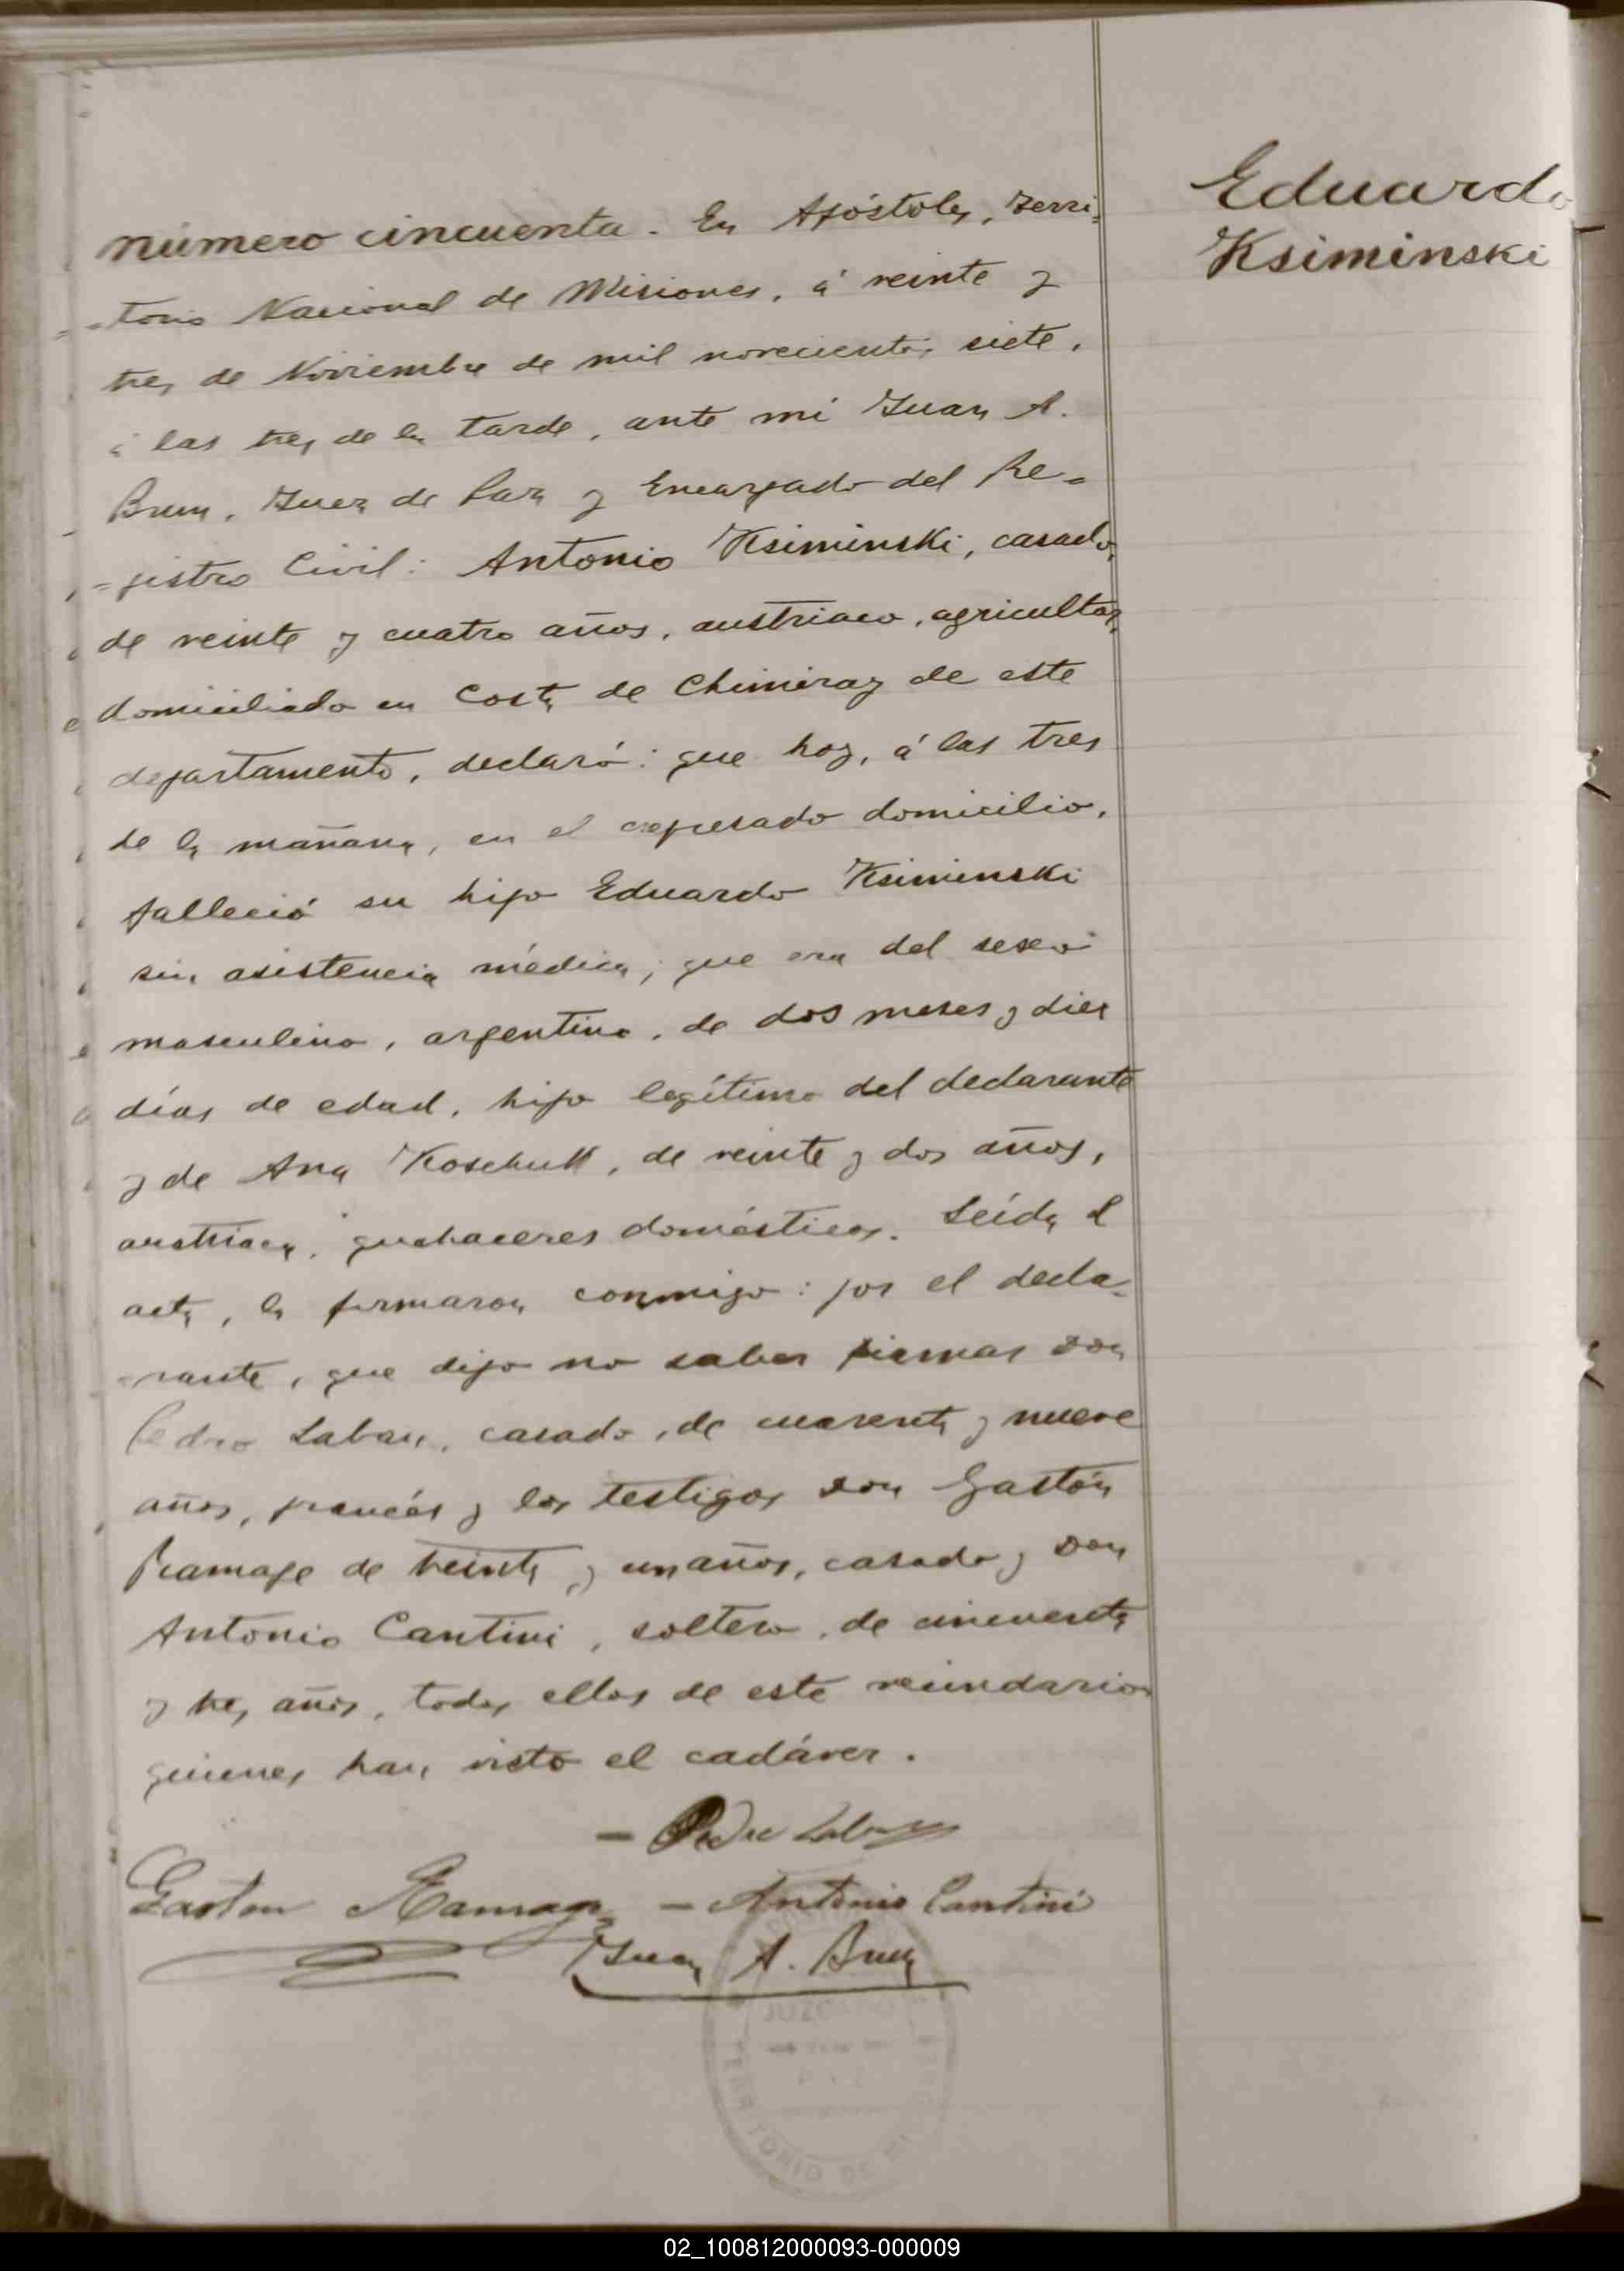 Eduardo
Ksiminski
Número cincuenta. En Apóstoles, Terri-
-torio Nacional de Misiones, á veinte y
tres de Noviembre de mil novecientos siete,
á las tres de la tarde, ante mí Juan A.
Brun, Juez de Paz y Encargado del Re-
-gistro Civil: Antonio Ksiminski, casado,
de veinte y cuatro años, austriaco, agricultor,
domiciliado en Costa de Chimiray de este
departamento, declaró: que hoy, á las tres
de la mañana, en el expresado domicilio,
falleció su hijo Eduardo Ksiminski
sin asistencia médica; que era del sexo
masculino, argentino, de dos meses y diez
días de edad, hijo legítimo del declarante
y de Ana Koschuk, de veinte y dos años,
austriaca, quehaceres domésticos. Leída el
acta, la firmaron conmigo: por el decla-
-rante, que dijo no saber firmar don
Pedro Laban, casado, de cuarenta y nueve
años, francés y los testigos don Gastón
Ramage de treinta y un años, casado y don
Antonio Cantini, soltero, de cincuenta
y tres años, todos ellos de este vecindario
quienes han visto el cadáver.
- Pedro Laban
Gaston Ramage - Antonio Cantini
Juan A. Brun
JUZGADO
TERRITORIO DE
02_100812000093-000009